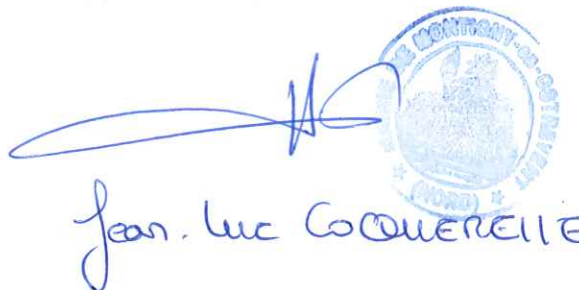 DE MONTIGNY-EN-OSTREVENT
(NORD)
Jean. Luc COCQUERELLE